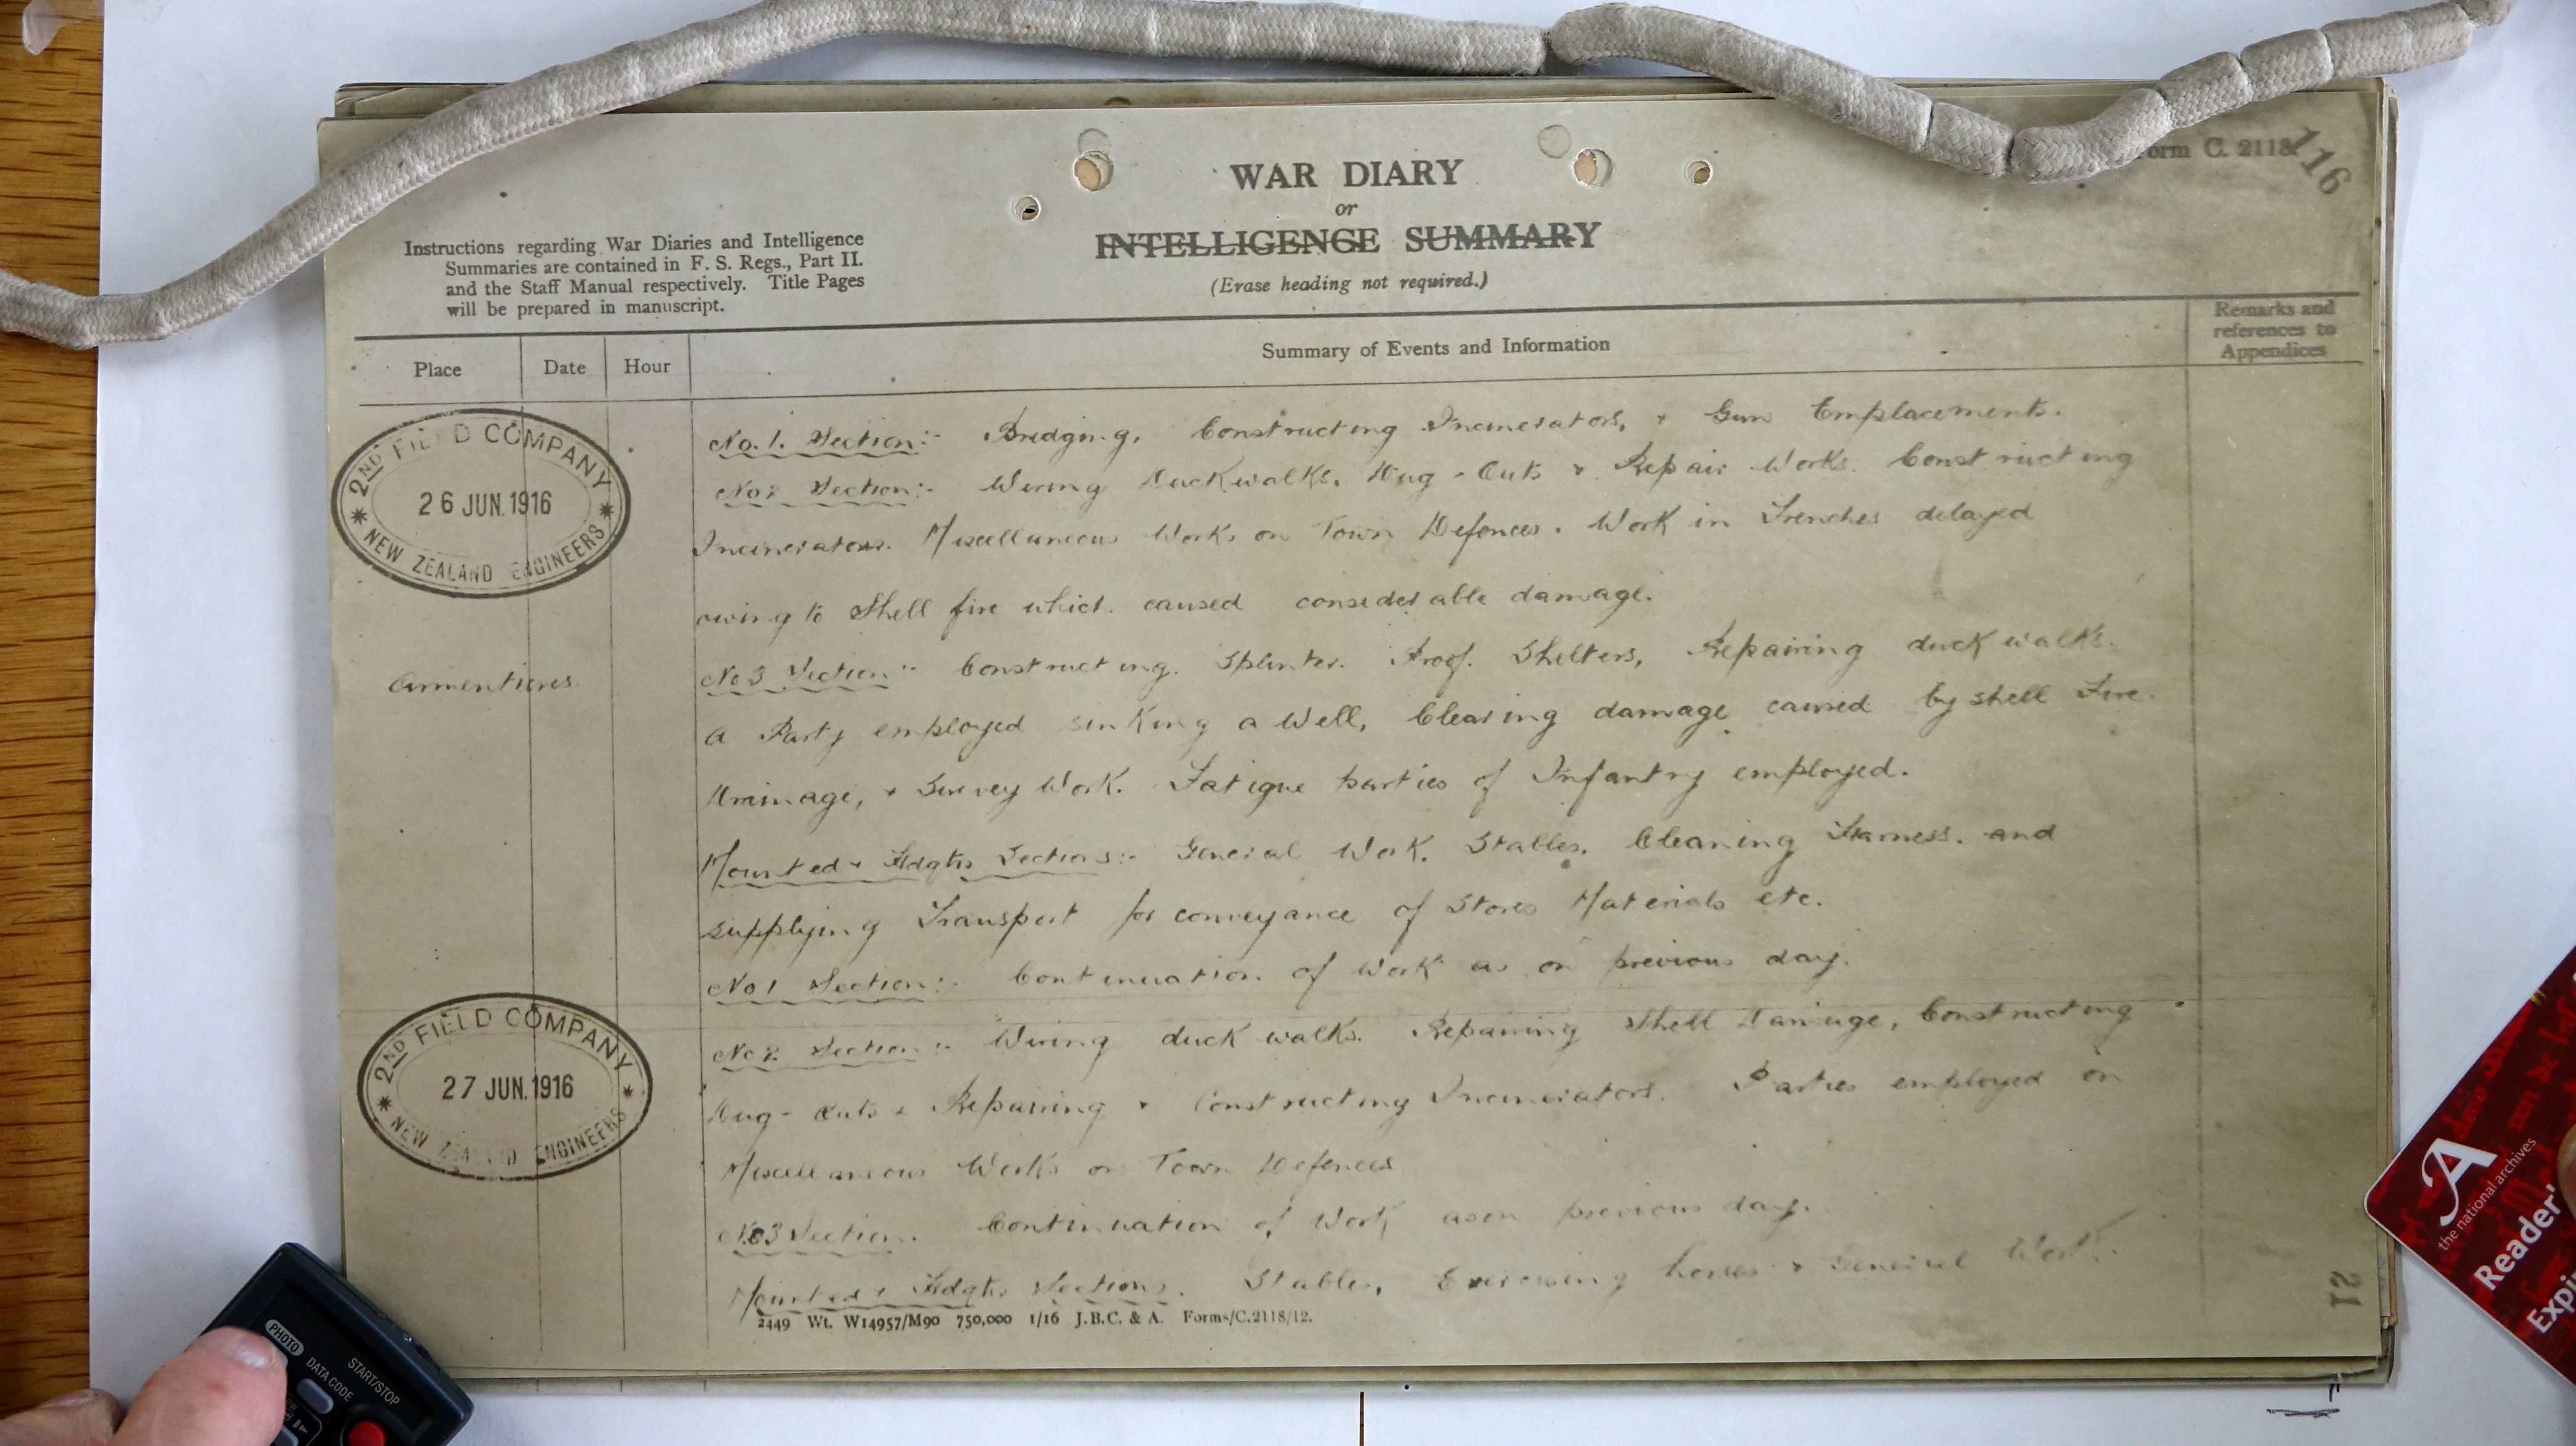 Form C. 2118
116
WAR DIARY
or
INTELLIGENCE SUMMARY
(Erase heading not required.)
Instructions regarding War Diaries and Intelligence
Summaries are contained in F. S. Regs., Part II.
and the Staff Manual respectively. Title Pages
will be prepared in manuscript.
Place Date Hour Summary of Events and Information Remarks and
references to
Appendices
2ND FIELD COMPANY
26 JUN. 1916
NEW ZEALAND ENGINEERS
No. 1. Section:- Bridging, Constructing Incinerators, + Gun Emplacements.
No 2 Section:- Wiring Duckwalks, Dug-Outs + Repair Works. Constructing
Incinerators. Miscellaneous Works on Town Defences. Work in Trenches delayed
owing to Shell fire which caused considerable damage.
Armentieres.
No 3 Section:- Constructing Splinter Proof Shelters, Repairing duck walks.
A Party employed sinking a Well, Clearing damage caused by shell Fire.
Drainage, + Survey Work. Fatigue parties of Infantry employed.
Mounted + Hdqtrs Sections:- General Work, Stables, Cleaning Harness, and
supplying Transport for conveyance of Stores Materials etc.
2ND FIELD COMPANY
27 JUN. 1916
NEW ZEALAND ENGINEERS
No 1 Section:- Continuation of Work as on previous day.
No 2 Section:- Wiring duck walks. Repairing Shell Damage, Constructing
Dug-Outs + Repairing + Constructing Incinerators. Parties employed on
Miscellaneous Works on Town Defences
No 3 Section. Continuation of Work as on previous day.
Mounted + Hdqtrs Sections. Stables, Exercising horses + General Work.
2449 Wt. W14957/M90 750,000 1/16 J.B.C. & A. Forms/C.2118/12.
21
PHOTO
DATA CODE
START/STOP
A
the national archives
Reader'
Expi